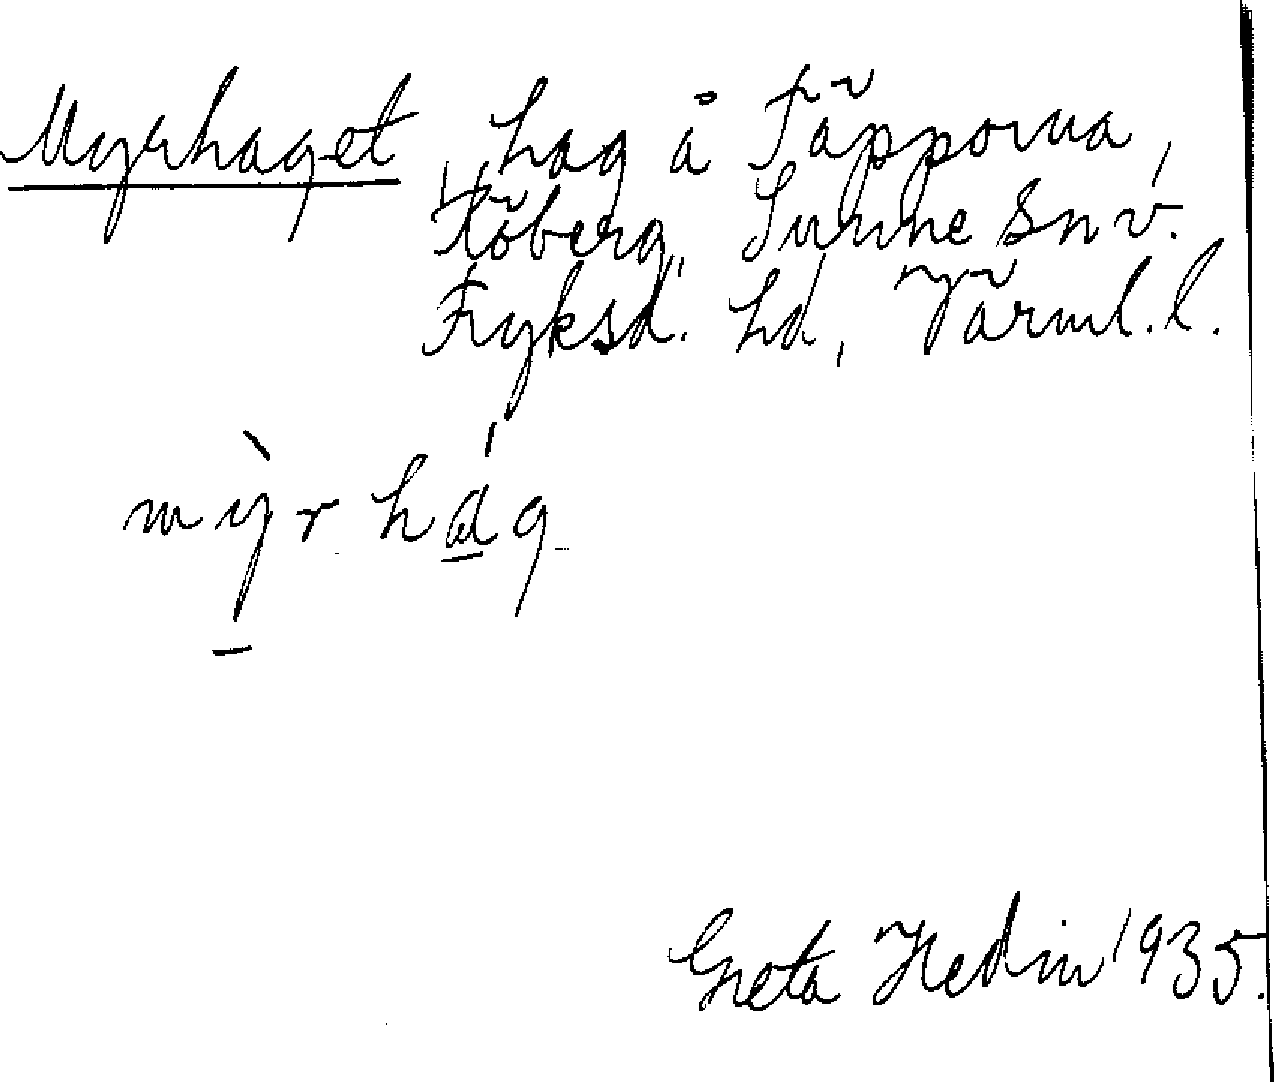 Myrhaget, hag å Täpporna,
Höberg, Sunne sn v.
Fryksd. hd, Värml. l.
mỳrhág
Greta Hedin 1935.